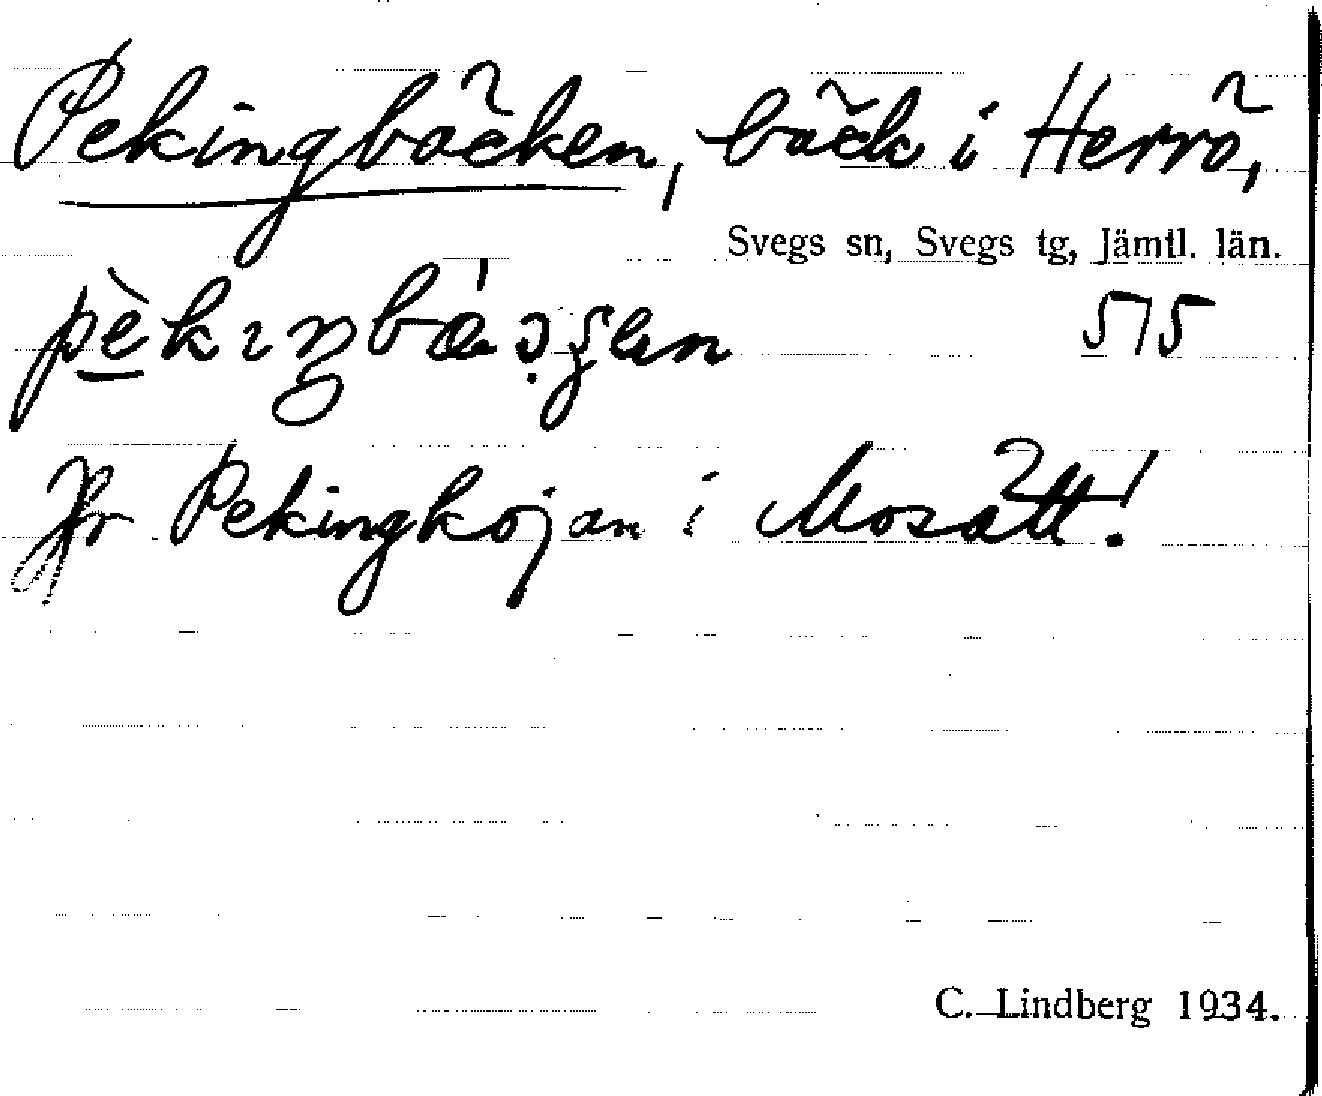 Pekingbäcken, bäck i Herrö,
Svegs sn, Svegs tg, Jämtl. län.
575
Jfr Pekingkojan i Mosätt!
C. Lindberg 1934.